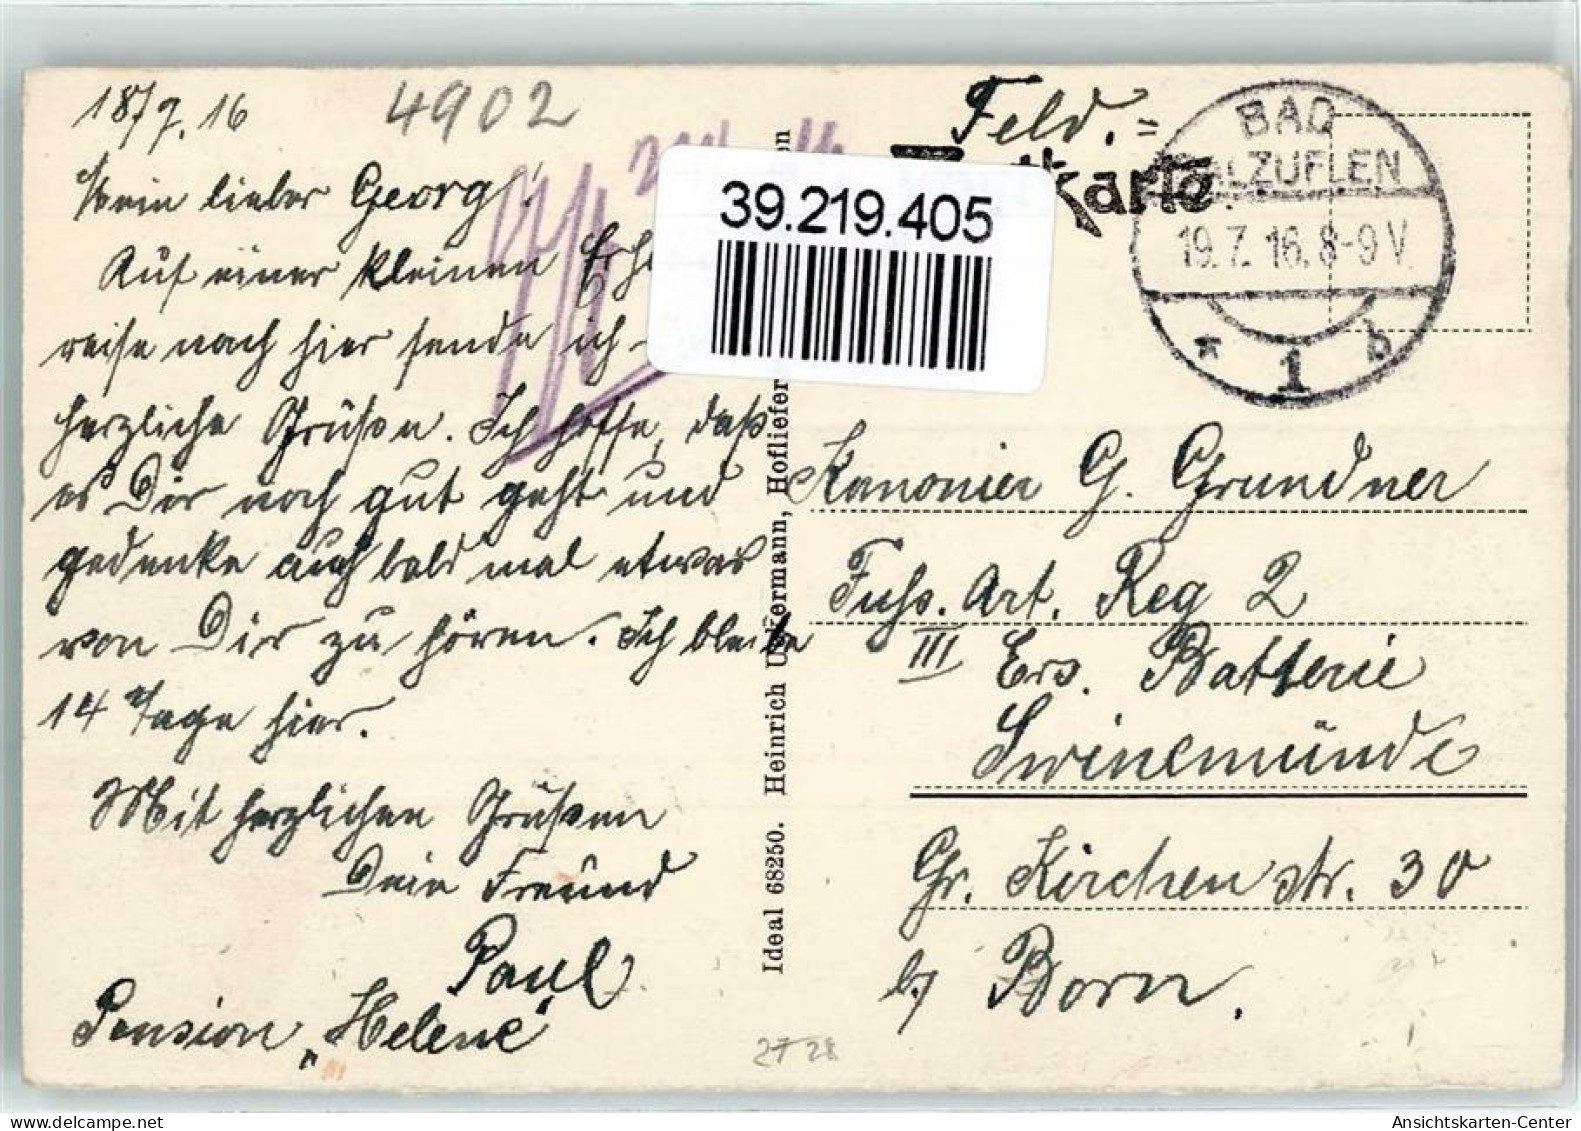 18/7.16
4902
Mein lieber Georg!
Auf einer kleinen
reise nach hier sende ich
herzliche Grüßen. Ich hoffe, daß
es Dir noch gut geht und
gedenke auch bald mal etwas
von Dir zu hören. Ich bleibe
14 Tage hier.
Mit herzlichen Grüßen
Dein Freund
Paul
Pension „Helene"
Feld.=
39.219.405
BAD
SALZUFLEN
19.7.16.8-9V.
* 1 b
Ideal 68250. Heinrich
Kanonier G. Grundner
Fuss. Art. Reg 2
III Ers. Batterie
Swinemünde
Gr. Kirchen str. 30
b/ Born.
Ansichtskarten-Center
delcampe.net